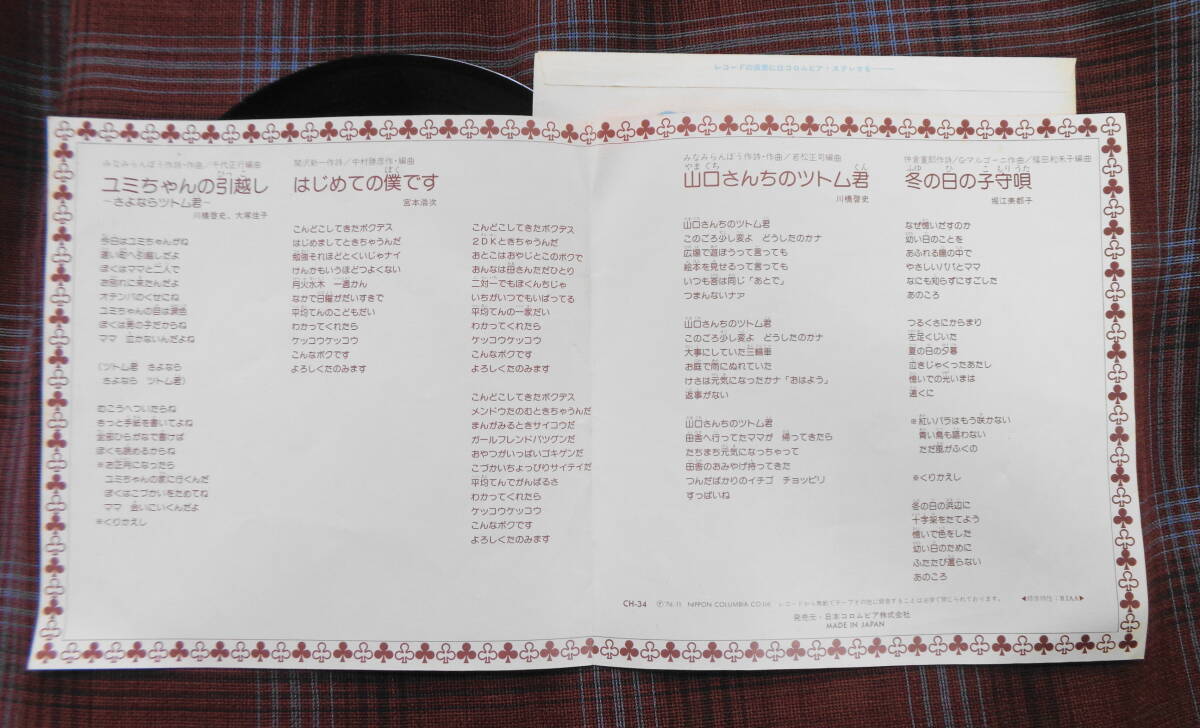 レコードの保護に□コロムビア・ステレオを
みなみらんぼう作詩・作曲／千代正行編曲
ユミちゃんの引越し
ひっこ
〜さよならツトム君〜
川橋啓史、大塚佳子
今日はユミちゃんがね
遠い町へ引越しだよ
ぼくはママと二人で
お別れに来たんだよ
オテンバのくせにね
ユミちゃんの目は涙色
ぼくは男の子だからね
ママ　泣かないんだよね
(ツトム君　さよなら
さよなら　ツトム君)
むこうへついたらね
きっと手紙を書いてよね
全部ひらがなで書けば
ぼくも読めるからね
※お正月になったら
ユミちゃんの家に行くんだ
ぼくはこづかいをためてね
ママ　会いにいくんだよ
※くりかえし
関沢新一作詩／中村勝彦作・編曲
はじめての僕です
ぼく
宮本浩次
こんどこしてきたボクデス
はじめましてときちゃうんだ
勉強それほどとくいじゃナイ
けんかもいうほどつよくない
月火水木　一週かん
なかで日曜がだいすきで
平均てんのこどもだい
わかってくれたら
ケッコウケッコウ
こんなボクです
よろしくたのみます
こんどこしてきたボクデス
2DKときちゃうんだ
おとこはおやじとこのボクで
おんなは母さんただひとり
二対一でもぼくんちじゃ
いちがいつでもいばってる
平均てんの一家だい
わかってくれたら
ケッコウケッコウ
こんなボクです
よろしくたのみます
こんどこしてきたボクデス
メンドウたのむときちゃうんだ
まんがみるときサイコウだ
ガールフレンドバツゲンだ
おやつがいっぱいゴキゲンだ
こづかいちょっぴりサイテイだ
平均てんでがんばるさ
わかってくれたら
ケッコウケッコウ
こんなボクです
よろしくたのみます
みなみらんぼう作詩・作曲／若松正司編曲
やまぐち　くん
山口さんちのツトム君
川橋啓史
山口さんちのツトム君
このごろ少し変よ　どうしたのカナ
広場で遊ぼうって言っても
絵本を見せるって言っても
いつも答は同じ「あとで」
つまんないナァ
山口さんちのツトム君
このごろ少し変よ　どうしたのカナ
大事にしていた三輪車
お庭で雨にぬれていた
けさは元気になったカナ「おはよう」
返事がない
山口さんちのツトム君
田舎へ行ってたママが　帰ってきたら
たちまち元気になっちゃって
田舎のおみやげ持ってきた
つんだばかりのイチゴ　チョッピリ
すっぱいね
仲倉重郎作詩／G・マルゴーニ作曲／福田和禾子編曲
ふゆ　ひ　こ　もりうた
冬の日の子守唄
堀江美都子
なぜ憶いだすのか
幼い日のことを
あふれる陽の中で
やさしいパパとママ
なにも知らずにすごした
あのころ
つるくさにからまり
左足くじいた
夏の日の夕暮
泣きじゃくったあたし
憶いでの光いまは
遠くに
※紅いバラはもう咲かない
青い鳥も唄わない
ただ風がふくの
※くりかえし
冬の日の浜辺に
十字架をたてよう
憶いで色をした
幼い日のために
ふたたび還らない
あのころ
CH-34　Ⓟ'76・11　NIPPON COLUMBIA CO.Ltd　レコードから無断でテープその他に録音することは法律で禁じられております。　◀録音特性：RIAA▶
発売元・日本コロムビア株式会社
MADE IN JAPAN